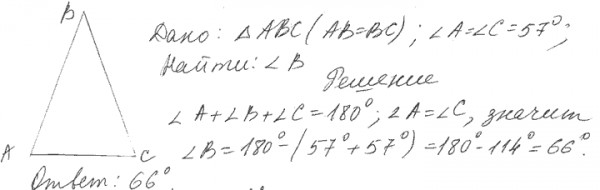 B
Дано: △ ABC (AB=BC); ∠A=∠C=57°;
Найти: ∠B
Решение
∠A+∠B+∠C=180°; ∠A=∠C, значит
∠B=180°-(57°+57°)=180°-114°=66°.
A C
Ответ: 66°.